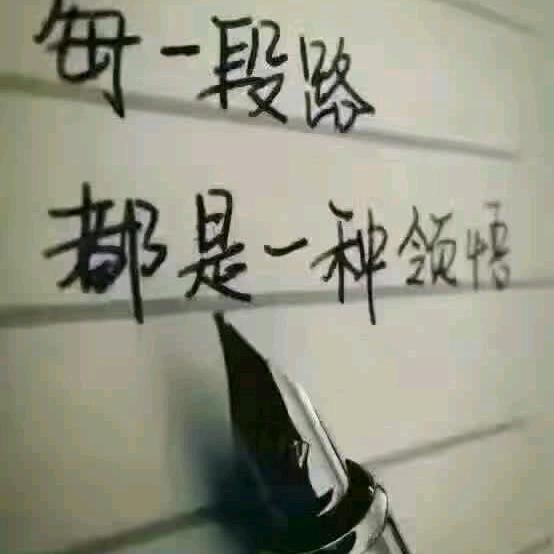 每一段路
都是一种领悟